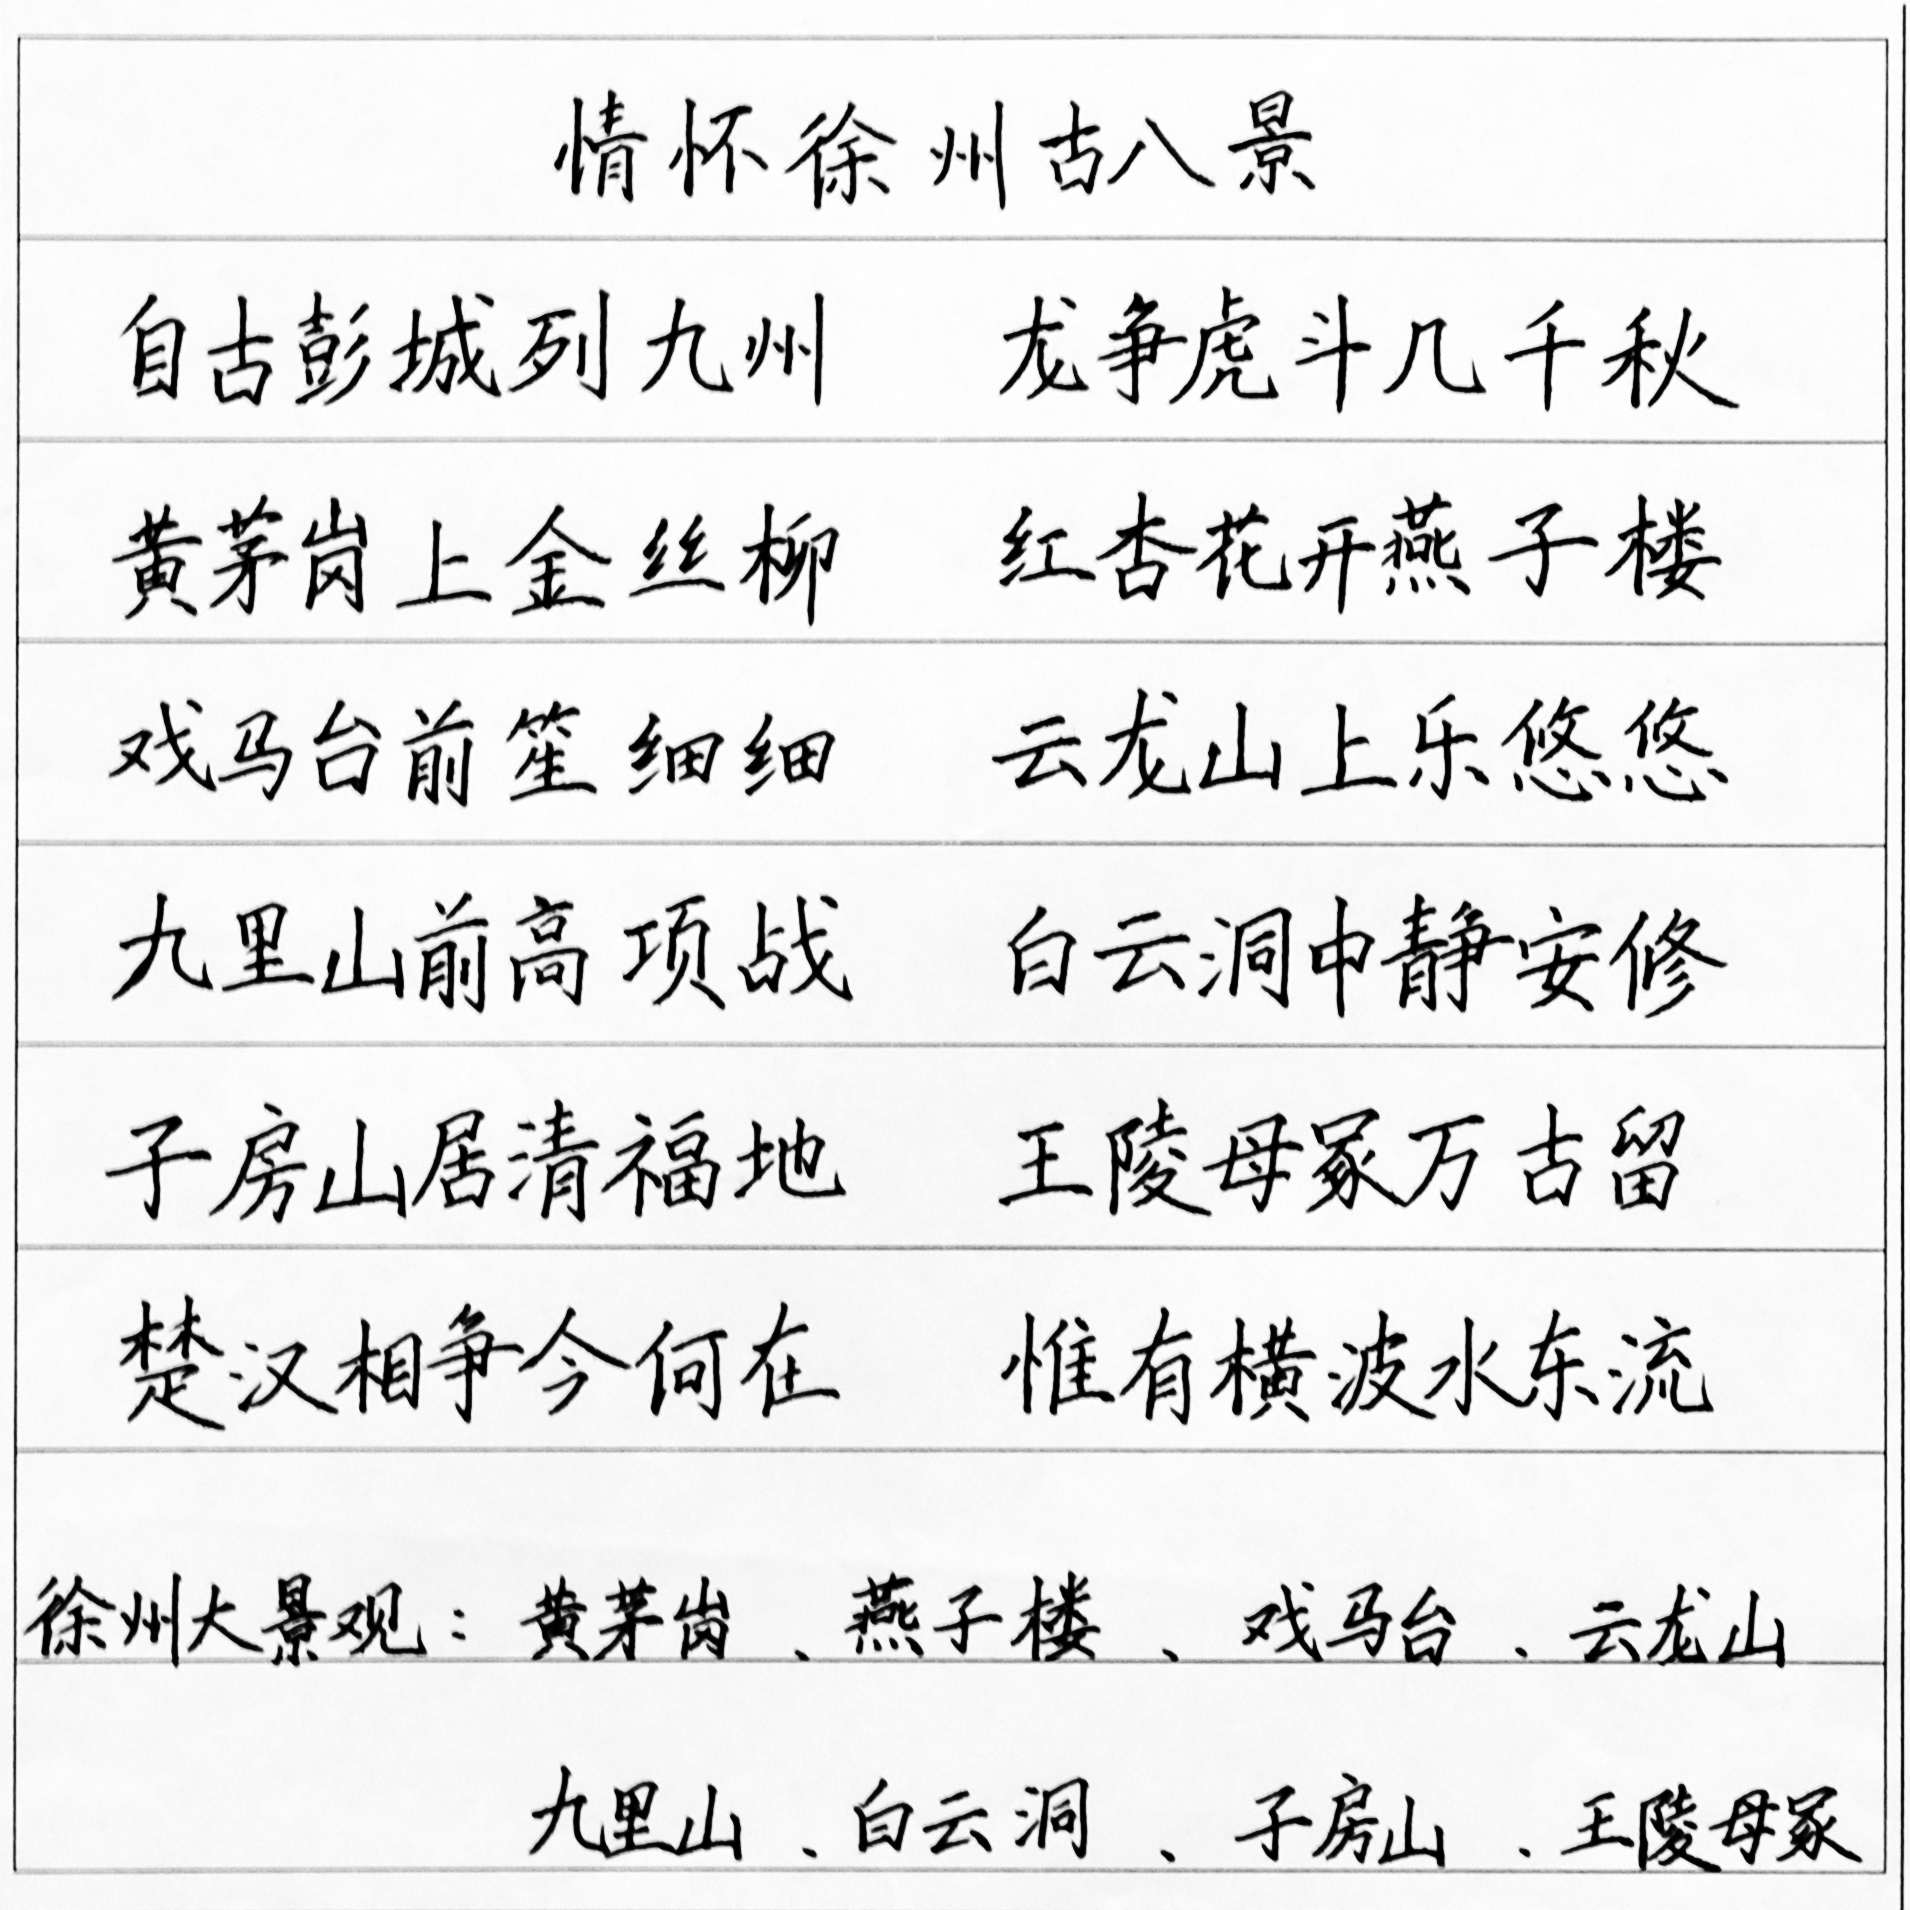 情怀徐州古八景
自古彭城列九州 龙争虎斗几千秋
黄茅岗上金丝柳 红杏花开燕子楼
戏马台前笙细细 云龙山上乐悠悠
九里山前高项战 白云洞中静安修
子房山居清福地 王陵母冢万古留
楚汉相争今何在 惟有横波水东流
徐州大景观：黄茅岗、燕子楼、戏马台、云龙山
九里山、白云洞、子房山、王陵母冢